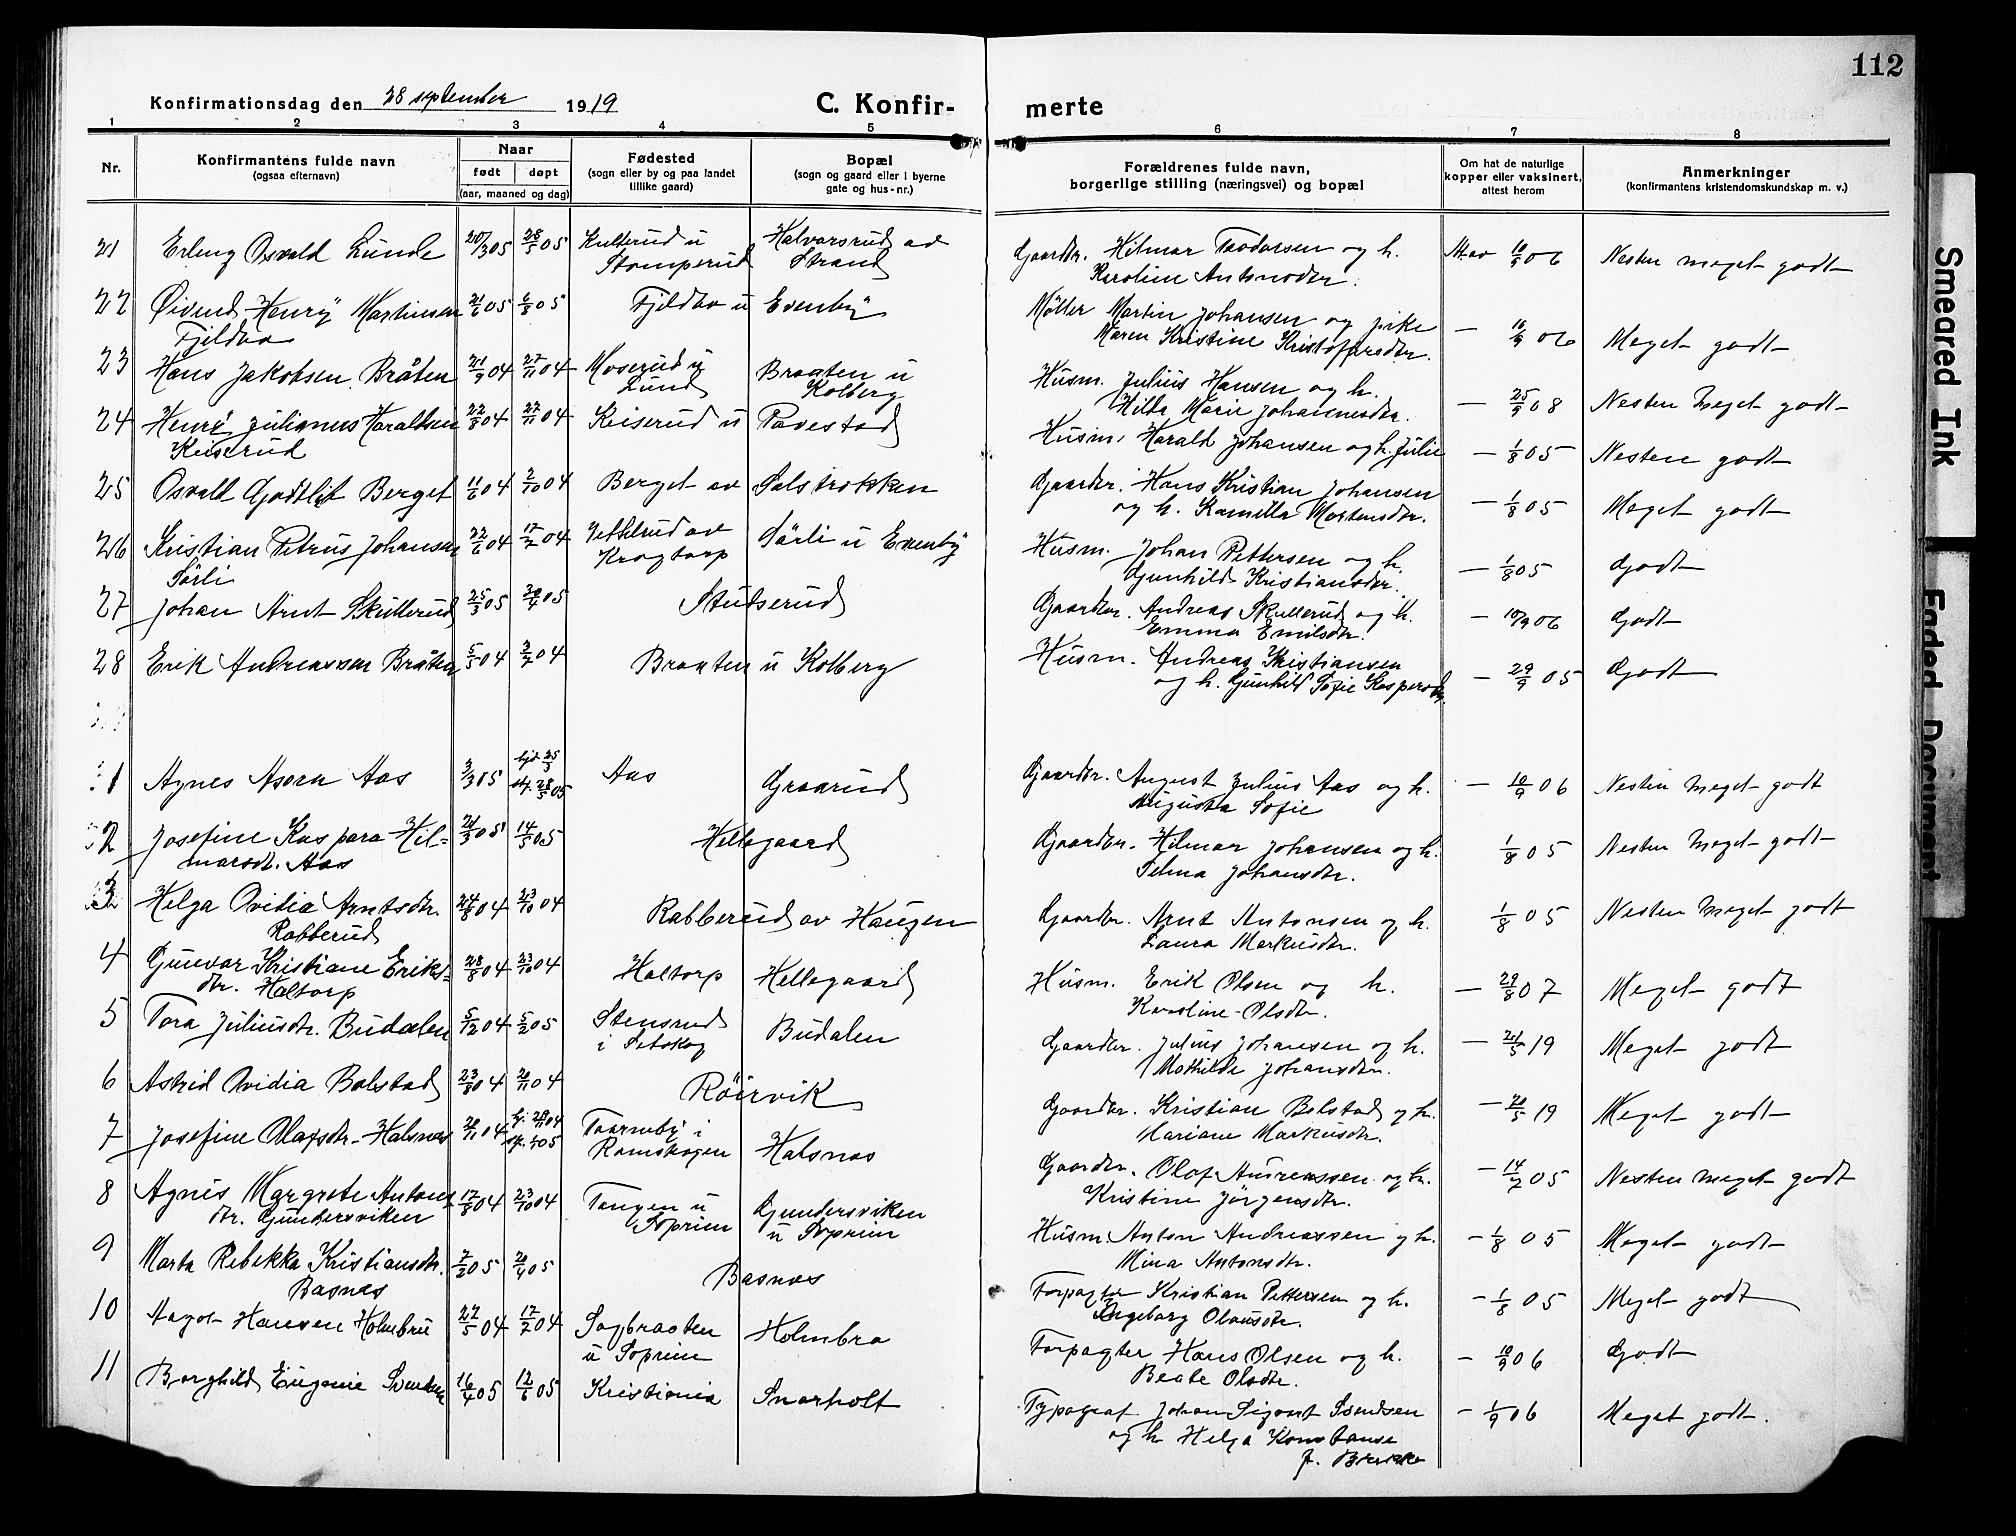 112
Konfirmationsdag den 28 september 1919
C. Konfir- merte
1 2 3 4 5 6 7 8
Nr.
Konfirmantens fulde navn
(ogsaa efternavn)
Naar
født døpt
(aar, maaned og dag)
Fødested
(sogn eller by og paa landet
tillike gaard)
Bopæl
(sogn og gaard eller i byerne
gate og hus-nr.)
Forældrenes fulde navn,
borgerlige stilling (næringsvei) og bopæl
Om hat de naturlige
kopper eller vaksinert,
attest herom
Anmerkninger
(konfirmantens kristendomskundskap m. v.)
21 Erling Osvald Lunde 20/3 05 28/5 05 Kulterud u Stomperud Halvorsrud av Strand Gaardbr. Hilmar Teodorsen og h. Karoline Antonsdtr. At. av 10/9 06 Nesten meget godt
22 Øivind Henry Martinsen Fjeldbo 21/6 05 6/8 05 Fjeldbo u Evenby Møller Martin Johansen og pike Maren Kristine Kristofersdtr. — 10/9 06 Meget godt
23 Hans Jakobsen Bråten 21/9 04 27/11 04 Moserud u Lund Braaten u Kolberg Husm. Julius Hansen og h. Hilda Marie Johannesdtr. — 25/9 08 Nesten meget godt
24 Henry Julianus Haraldsen Keiserud 22/8 04 27/11 04 Keiserud u Tovestad Husm. Harald Johansen og h. Julie — 1/8 05 Nesten godt
25 Osvald Godtlib Berget 11/6 04 2/10 04 Berget av Solstrokken Gaardbr. Hans Kristian Johansen og h. Kamilla Mortensdtr. — 1/8 05 Meget godt
26 Kristian Petrus Johansen Sørli 22/6 04 17/7 04 Jetterud av Krogtorp Sørli u Evenby Husm. Johan Pettersen og h. Gunhild Kristiansdtr. — 1/8 05 Godt
27 Johan Arnt Skullerud 25/3 05 30/4 05 Stutserud Gaardbr. Andreas Skullerud og h. Emma Emilsdtr. — 10/9 06 Godt
28 Erik Andreassen Bråten 5/5 04 3/7 04 Braaten u Kolberg Husm. Andreas Kristiansen og h. Gunhild Sofie Kaspersdtr. — 29/9 05 Godt
1 Agnes Asora Aas 3/3 05 hjd. 25/3 st. 28/5 05 Aas Graarud Gaardbr. August Julius Aas og h. Augusta Sofie — 10/9 06 Nesten meget godt
2 Josefine Kaspara Hil- marsdt. Aas 21/3 05 14/5 05 Hellegaard Gaardbr. Hilmar Johansen og h. Selma Johansdtr. 1/8 05 Nesten meget godt
3 Helga Ovidia Arntsdtr. Rabberud 24/8 04 23/10 04 Rabberud av Haugen Gaardbr. Arnt Antonsen og h. Laura Markusdtr. 1/8 05 Nesten meget godt
4 Gunvor Kristiane Eriks- dtr. Holtorp 28/8 04 23/10 04 Holtorp Hellegaard Husm. Erik Olsen og h. Karoline Olsdtr. — 29/8 07 Meget godt
5 Tora Juliusdtr. Budalen 5/12 04 5/2 05 Stensrud i Setskog Budalen Gaardbr. Julius Johansen og h. Mathilde Johansdtr. — 20/5 19 Meget godt
6 Astrid Ovidia Bolstad 23/8 04 20/11 04 Röirvik Gaardbr. Kristian Bolstad og h. Mariane Markusdtr. — 20/5 19 Meget godt
7 Josefine Olafsdtr. Halsnas 20/11 04 Taarneby i Romskogen Halsnas Gaardbr. Olaf Andreassen og h. Kristine Jørgensdtr. — 14/7 05 Nesten meget godt
8 Agnes Margrete Antons- dtr. Gundersviken 17/8 04 23/10 04 Tangen u Soprim Gundersviken u Soprim Husm. Anton Andreassen og h. Mina Antonsdtr. — 1/8 05 Meget godt
9 Marta Rebekka Kristiansdtr. Basnas 7/2 05 20/4 05 Basnas Forpagter Kristian Pettersen og h. Ingeborg Olausdtr. — 1/8 05 Meget godt
10 Aagot Hansen Holmbru 22/5 04 17/7 04 Sagbraaten u Soprim Holmbro Forpagter Hans Olsen og h. Beate Olsdtr. — 10/9 06 Godt
11 Borghild Eugenie Svendsen 16/4 05 12/6 05 Kristiania Snarholt Typograf Johan Sigvart Svendsen og h. Helga Konstanse f. Brekke — 1/9 06 Meget godt.
Smeared Ink
Faded Document